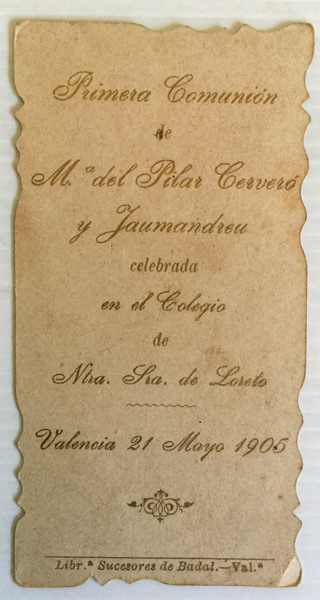 Primera Comunión
de
M.ª del Pilar Cerveró
y Jaumandreu
celebrada
en el Colegio
de
Ntra. Sra. de Loreto
Valencia 21 Mayo 1905
Libr.ª Sucesores de Badal.—Val.ª